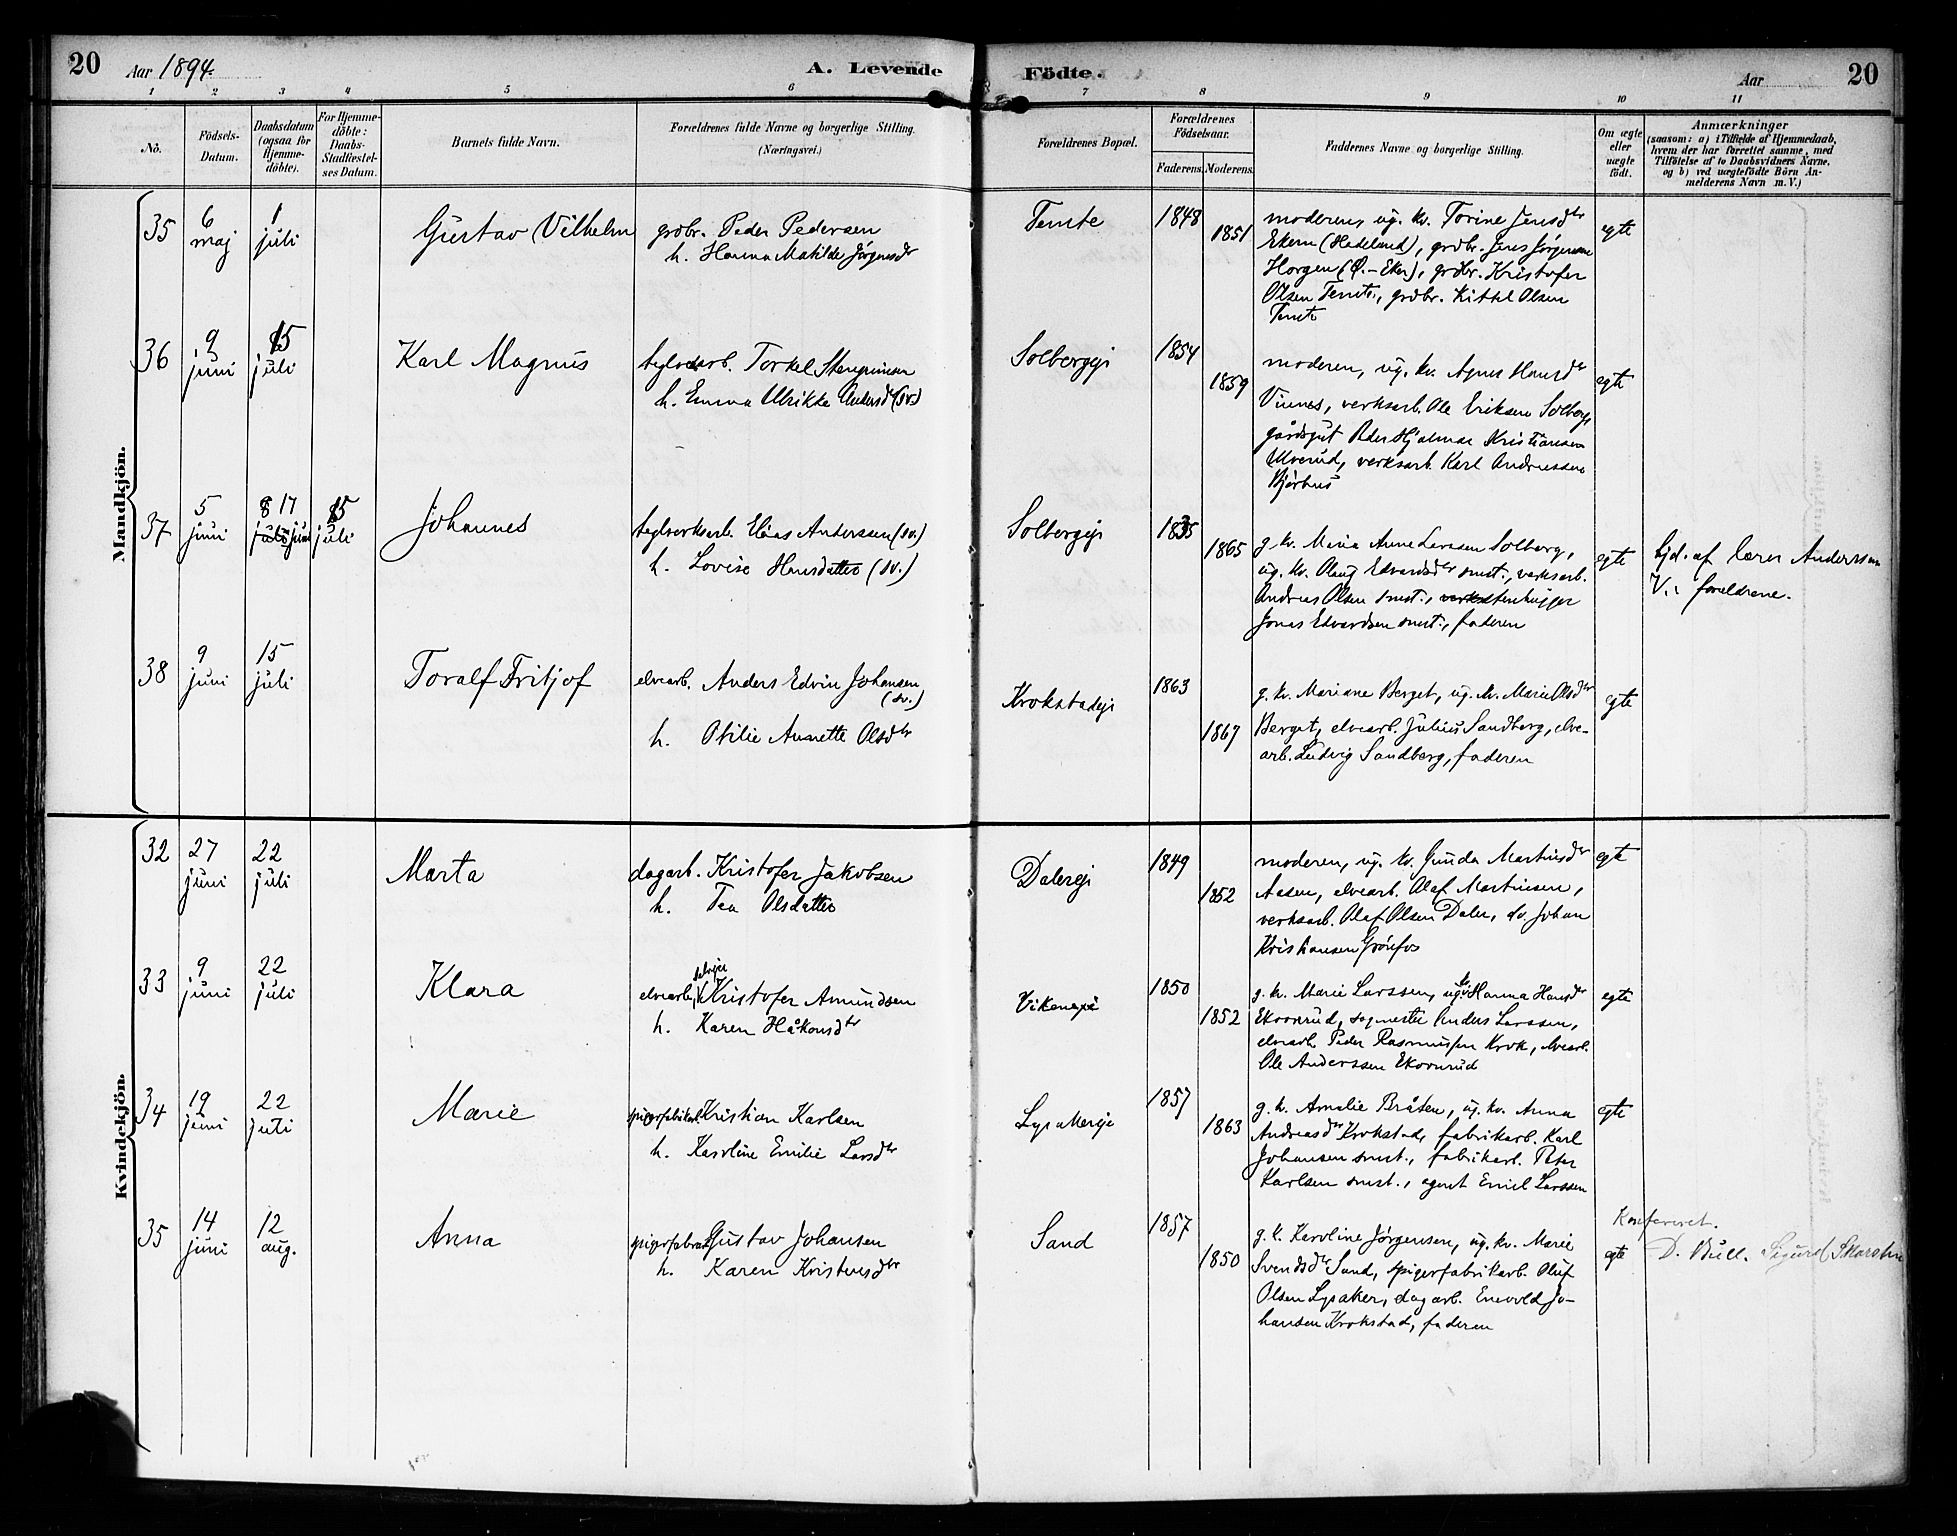 20 Aar 1894. A. Levende Födte. Aar 20
1 2 3 4 5 6 7 8 9 10 11
No.
Födsels-Datum.
Daabsdatum (ogsaa for Hjemme-döbte).
For Hjemme-döbte: Daabs-Stadfæstel-ses Datum.
Barnets fulde Navn.
Forældrenes fulde Navne og borgerlige Stilling.
(Næringsvei.)
Forældrenes Bopæl.
Forældrenes Födselsaar.
Faderens. Moderens.
Faddernes Navne og borgerlige Stilling.
Om ægte eller uægte födt.
Anmærkninger
(saasom: a) i Tilfælde af Hjemmedaab,
hvem der har forrettet samme, med
Tilföielse af to Daabsvidners Navne,
og b) ved uægtefödte Börn An-
melderens Navn m. V.)
Mandkjön.
35 6 maj 1 juli Gustav Vilhelm
grdbr. Peder Pedersen
h. Hanna Matilde Jørgensdr
Temte 1848 1851
moderen, ug. kv. Torine Jensdtr
Ekern (Hadeland), grdbr. Jens Jørgensen
Horgen (Ø.-Eker), grdbr. Kristofer
Olsen Temte, grdbr. Kittel Olsen
Temte
egte
36 9 juni 15 juli Karl Magnus
teglverksarb. Torkel
h. Emma Ulrikke Andersd (sv.)
Solbergeji 1854 1859
moderen, ug. kv. Agnes Hansdtr
Vinnes, verksarb. Ole Eriksen Solberg,
gårdsgut Peder Hjalmar Kristiansen
Ulverud, verksarb. Karl Andreassen
egte
37 5 juni 8 17 juli juni 15 juli Johannes
teglverksarb. Elias Anderssen (sv.)
h. Lovise Hansdatter (sv.)
Solbergeji 1835 1865
g. kv. Maria Anne Larssen Solberg,
ug. kv. Olaug Edvardsdtr smst., verksarb.
Andreas Olsen smst., stenhugger
Jonas Edvardsen smst., faderen
egte
hjd. af lærer Anderssen
V.: forældrene.
38 9 juni 15 juli Toralf Fritjof
elvearb. Anders Edvin Johansen
(sv.)
h. Otilie Annette Olsdtr
Krokstadeje 1863 1867
g. kv. Mariane Berget, ug. kv. Marie Olsdtr
Berget, elvearb. Julius Sandberg, elve-
arb. Ludvig Sandberg, faderen
egte
Kvindekjön.
32 27 juni 22 juli Marta
dagarb. Kristofer Jakobsen
h. Tea Olsdatter
Dalereji 1849 1852
moderen, ug. kv. Gunda Martinsdtr
Aasen, elvearb. Olaf Martinsen,
verksarb. Olaf Olsen Daler, do. Johan
Kristiansen Grönfos
egte
33 9 juni 22 juli Klara
elvearb., selvejer Kristofer Amundsen
h. Karen Håkonsdtr
Vikeneje 1850 1852
g. k. Marie Larssen, ug. kv. Hanna Hansdr
Ekornrud, sagmester Anders Larssen,
elvearb. Peder Rasmussen Krok, elvearb.
Ole Anderssen Ekornrud
egte
34 19 juni 22 juli Marie
spigerfabrikarb. Kristian Karlsen
h. Karoline Emilie Larsdtr
Lysakereje 1857 1863
g. k. Amalie Bråten, ug. kv. Anna
Andreasdtr Krokstad, fabrikarb. Karl
Johansen smst., fabrikarb. Peter
Karlsen smst., agent Emil Larssen
egte
35 14 juni 12 aug. Anna
spigerfabrikarb. Gustav Johansen
h. Karen Kristensdtr
Sand 1857 1850
g. k. Karoline Jørgensen, ug. kv. Marie
Svendsdtr Sand, spigerfabrikarb. Oluf
Olsen Lysaker, dagarb. Enevold Jo-
hansen Krokstad, faderen
egte
Konfereret.
D. Bull. Sigurd Skarstein